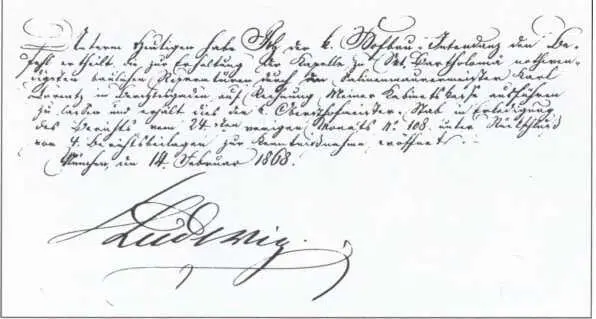 Unterm Heutigen habe Ich der k. Hofbau-Intendanz den Be-
fehl ertheilt die zur Erhaltung der Kapelle zu St. Bartholomä nothwen-
digsten baulichen Reparaturen durch den Salinenmaurermeister Karl
in Berchtesgaden auf Rechnung Meiner Kabinetskasse ausführen
zu lassen und erhält dies der k. Obersthofmeister-Stab in Erledigung
des Berichts vom 24sten vorigen Monats No. 108. unter Rückschluß
von 4. Berichtsbeilagen zur Kenntnißnahme eröffnet.
München, den 14. Februar 1868.
Ludwig.